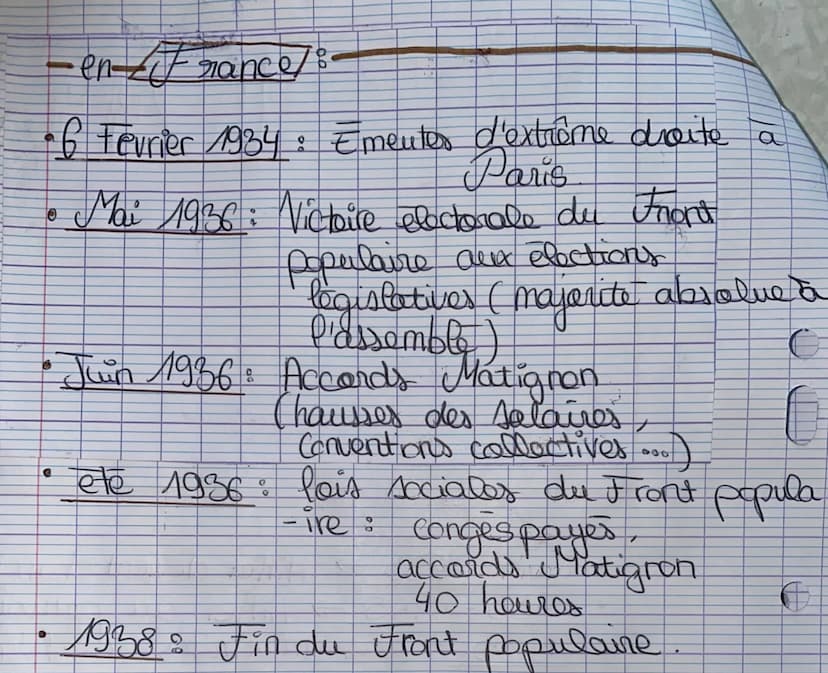 - en France :
• 6 Février 1934 : Emeutes d'extrême droite à
Paris.
• Mai 1936 : Victoire électorale du Front
populaire aux élections
législatives (majorité absolue à
l'assemblé)
• Juin 1936 : Accords Matignon
(hausses des salaires,
conventions collectives ...)
• été 1936 : lois sociales du Front popula
-ire : congés payés,
accords Matignon
40 heures
• 1938 : Fin du Front populaire.